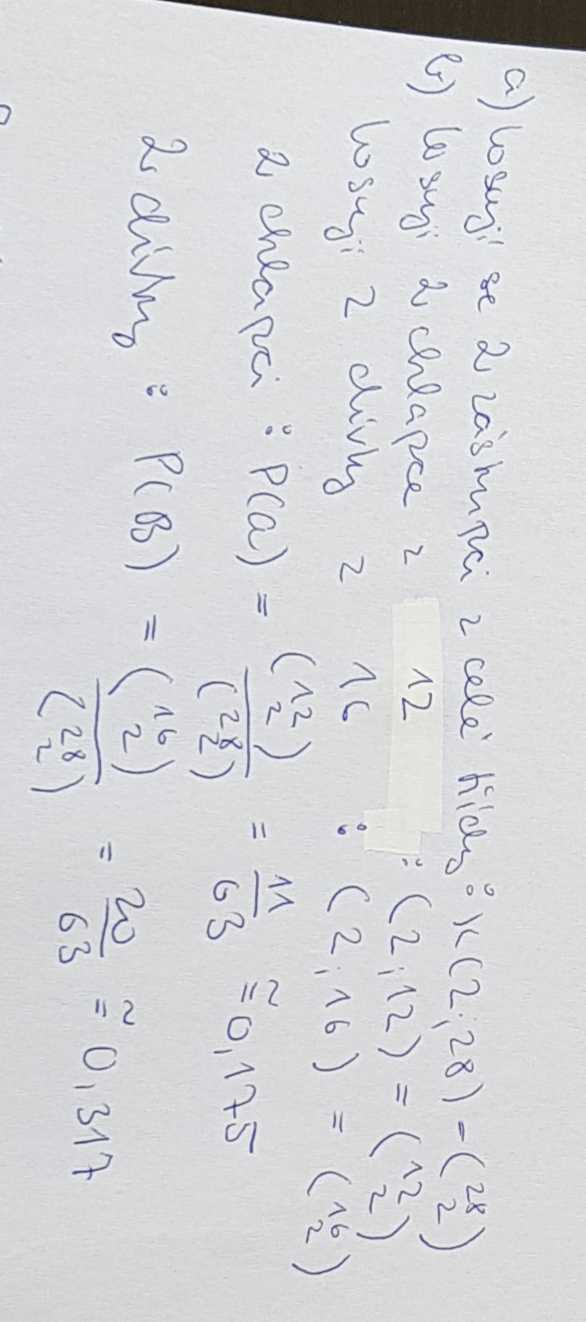 a) losují se 2 zástupci z celé třídy: K(2;28) = (28 2)
b) losuji 2 chlapce z 12 : (2;12) = (12 2)
losuji 2 dívky z 16 : (2;16) = (16 2)
2 chlapci : P(a) = (12 2)/(28 2) = 11/63 ≅ 0,175
2 dívky : P(B) = (16 2)/(28 2) = 20/63 ≅ 0,317